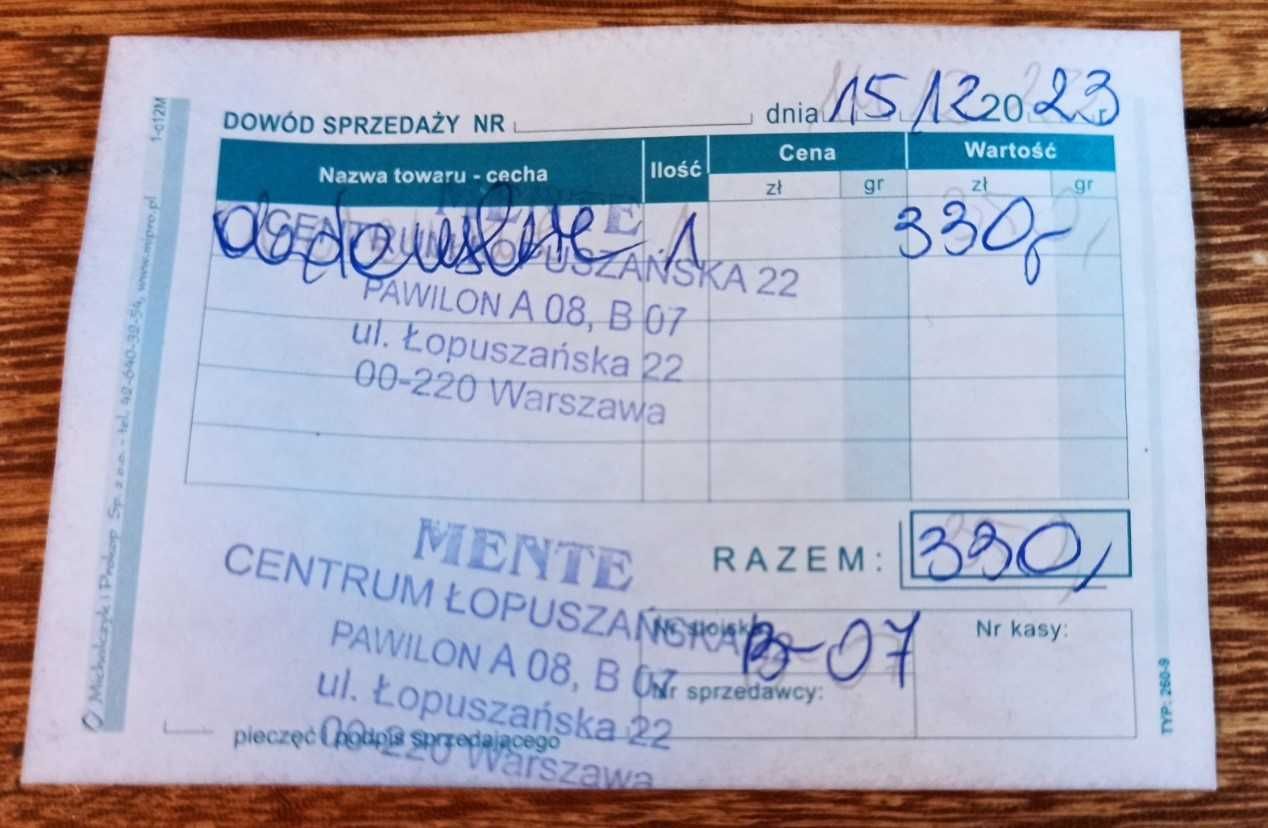 DOWÓD SPRZEDAŻY NR dnia 15.12 2023 r.
Nazwa towaru - cecha Ilość Cena Wartość
zł gr zł gr
1 330,-
MENTE
CENTRUM ŁOPUSZAŃSKA 22
PAWILON A 08, B 07
ul. Łopuszańska 22
00-220 Warszawa
RAZEM: 330,
MENTE
CENTRUM ŁOPUSZAŃSKA 22
PAWILON A 08, B 07
ul. Łopuszańska 22
00-220 Warszawa
Nr stoiska B-07
Nr kasy:
Nr sprzedawcy:
pieczęć i podpis sprzedającego
Michalczyk i Prokop Sp. z o.o. - tel. 42-640-32-54, www.mipro.pl 1-c12M
TYP: 260-9